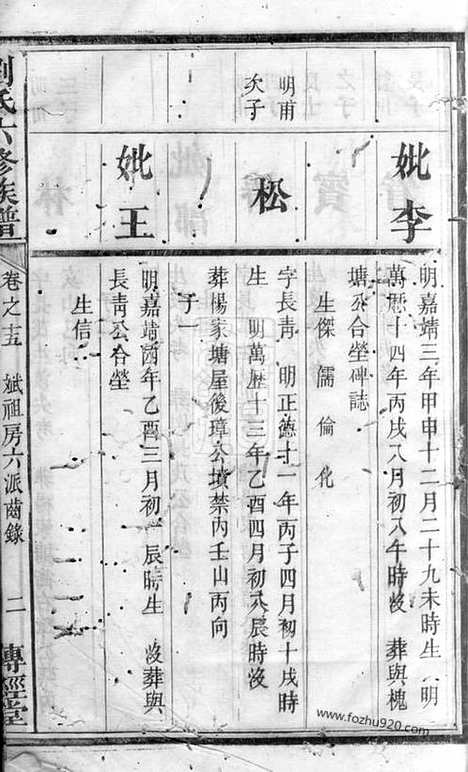 妣李
明嘉靖三年甲申十二月二十九未時生　明
萬厯十四年丙戌八月初八午時歿　葬與槐
塘公合塋碑誌
生傑　儒　倫　化
明甫
次子
松
字長青　明正德十一年丙子四月初十戌時
生　明萬歷十三年乙酉四月初八辰時歿
葬楊家塘屋後璋公墳禁內壬山丙向
子一
妣王
明嘉靖四年乙酉三月初一辰時生　歿葬與
長青公合塋
生信
劉氏六修族譜
卷之十五
斌祖房六派齒錄
二
傳經堂
www.fozhu920.com